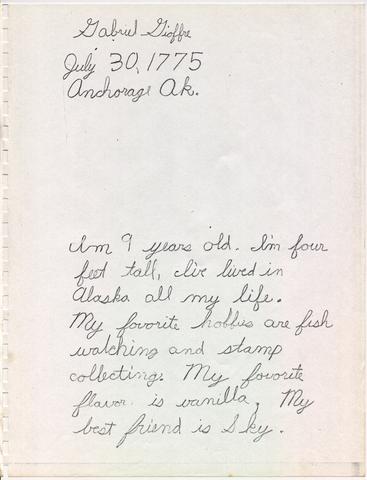 Gabriel Gioffre
July 30, 1775
Anchorage Ak.
I'm 9 years old. I'm four
feet tall, I've lived in
Alaska all my life.
My favorite hobbis are fish
watching and stamp
collecting. My favorite
flavor is vanilla. My
best friend is Sky.